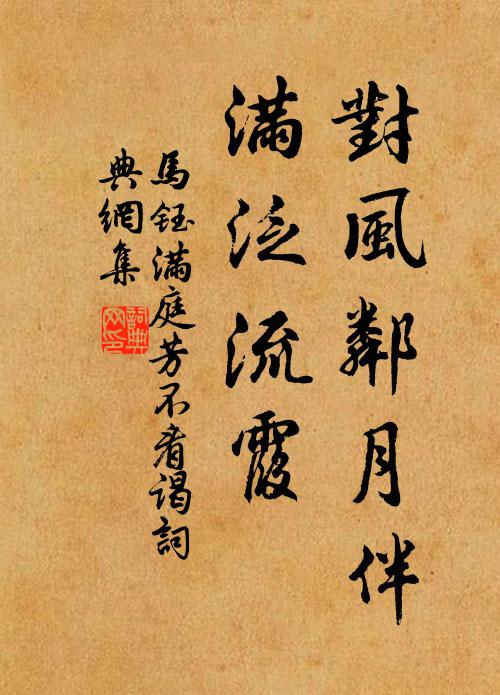 對風鄰月伴
滿泛流霞
馬鈺滿庭芳不看謁詞
典網集
詞典網印